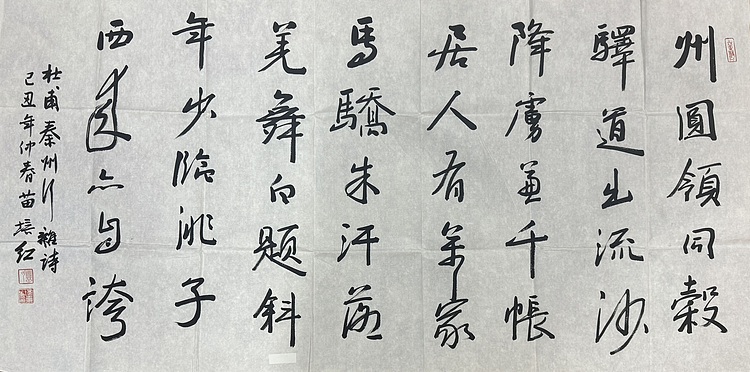 州圓領同穀
驛道出流沙
降虜兼千帳
居人有萬家
馬驕朱汗落
羌舞白題斜
年少臨洮子
西來亦自誇
杜甫秦州行雜詩
己丑年仲春苗培红